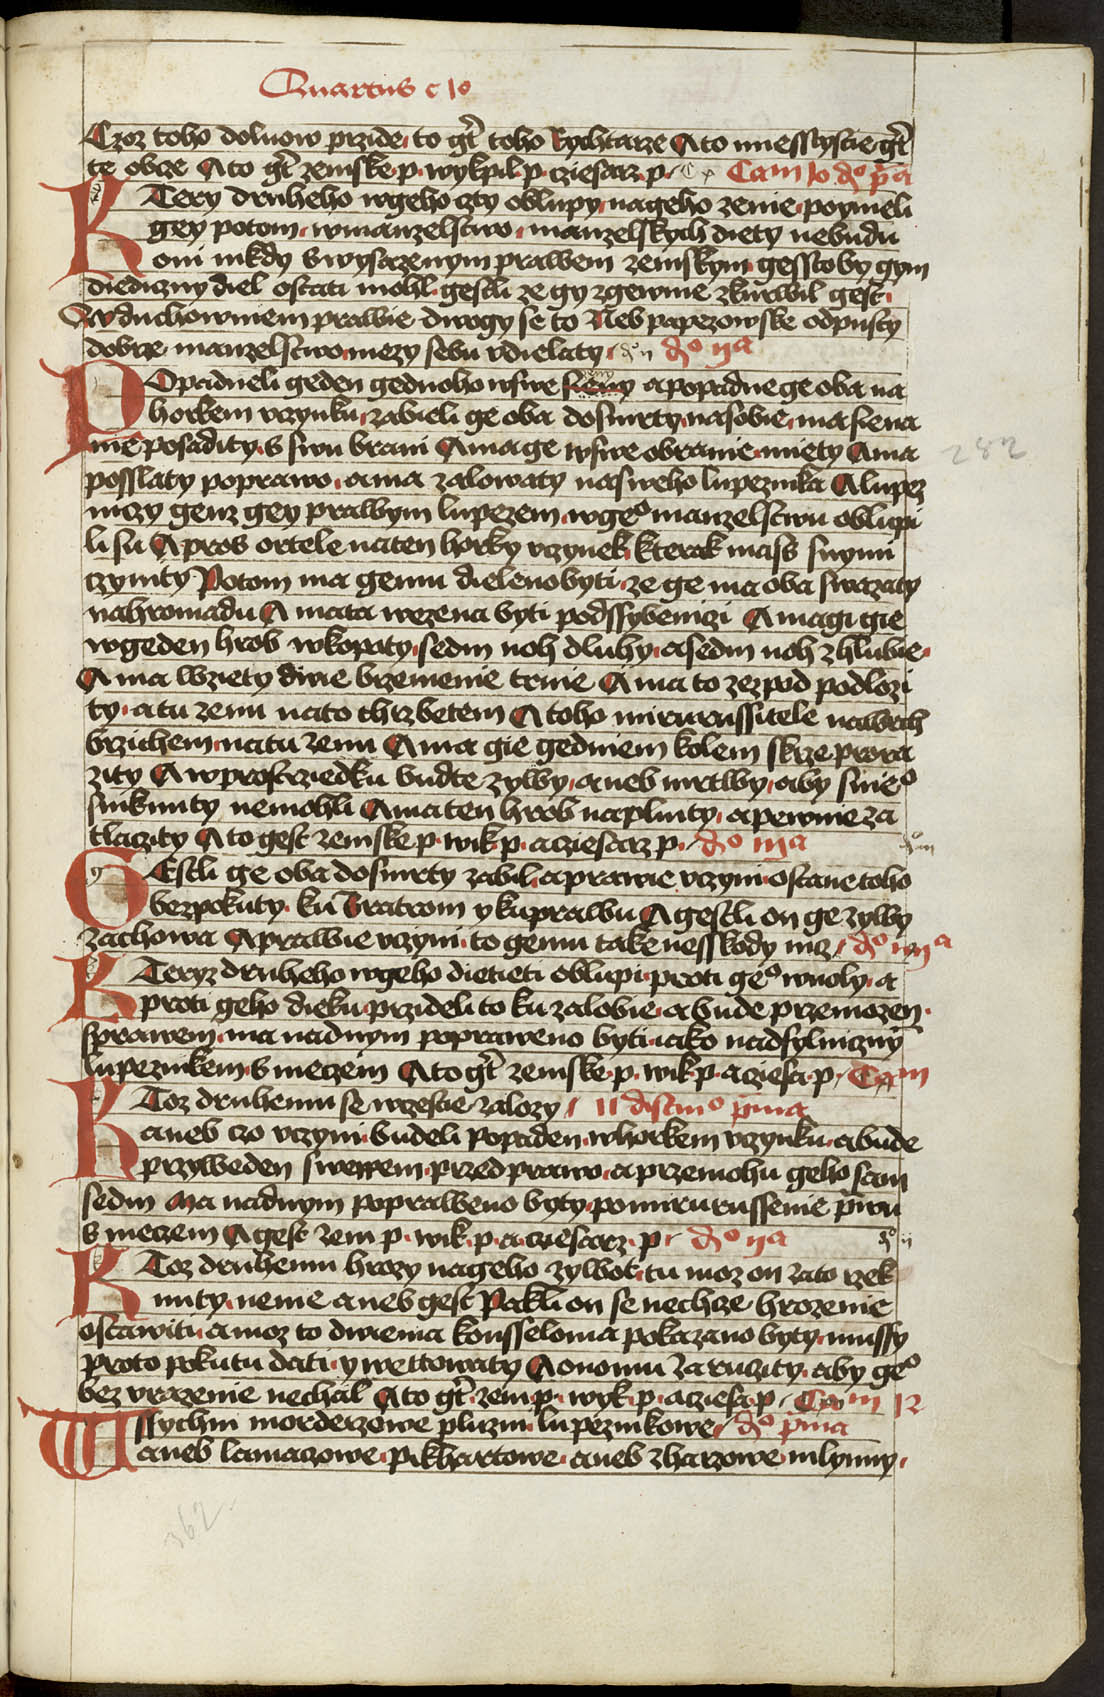 Quartus c 10
Czoz toho doluow przide to gt toho Rychtarze A to miesstyscie gt
te obcze A to gt zemske p wykpil p cziesarz p Cam 10 do pa
Ktery druheho wgeho czty oblupy nageho zenie poymeli
gey potom wmanzelstwo manzelskych diety nebudu
oni nikdy s wysazenym prawem zemskym gessto by gym
diediczny diel ostati mohl gestli ze gy zgewnie zkurwil gest
W duchowniem prawie dwogy se to Neb papezowske odpusty
dobrze manzelstwo mezy sebu vdielaty do ii do iia
Popadneli geden gednoho wswe zeny a popadne ge oba na
horkem vczynku zabieli ge oba dosmrty nasobie ma se na
nie posadity s swu brani A ma ge wswe obranie miety A ma
posslaty po prawo a ma zalowaty na sweho lupeznika A lupez
niczy genz gey prawym lupezem wgeo manzelstwu oblupi
li su A pros ortele na ten horky vczynek kterak mass snymi
czynity Potom ma gemu dieleno byti ze ge ma oba swazaty
nahromadu A mata wezena byti pod ssybeniczi A magi gie
wgeden hrob wkopaty sedm noh dluhy a sedm noh zhlubie
A ma wziety dwie brzemenie trnie A ma to zezpod podlozi
ty a tu zenu nato chrzbetem A toho mirurussitele nawrch
brzichem na tu zenu A ma gie gedniem kolem skrze prora
zity A wprostrziedku budte zywy aneb mrtwy aby s nieo
smknuty nemohli A ma ten hrob naplnity a pewnie za
tlaczity A to gest zemske p wik p a cziesarz p do iiia do iii
Gestli ge oba dosmrty zabil a prawie vczyni ostane toho
bez pokuty ku Bratrom y ku prawu A gestli on ge zywy
zachowa A prawie vczyni to gemu take nesskody nicz do iiiia
Kteryz druheho wgeho dietieti oblupi proti geo wuoly a
proti geho dieku przideli to ku zalobie a bude przemozen
s prawem ma nad nym popraweno byti iako nad sylniczny
lupeznikem s meczem A to gt zemske p wik p a ciesa p Cam
Ktoz druhemu se wczestie zalozy 11 distinco prima
aneb czo vczyni budeli popaden whorkem vczynku a bude
przyweden swerem przed prawo a przemohu geho sam
sedm Ma nad nym poprawbeno byty po mirurussenie prwu
s meczem A gest zem p wik p a cziesarz p do iia do ii
Ktoz druhemu hrozy nageho zywbot tu moz on zato rzek
nuty nenie aneb gest Pakli on se nechcze hrozenie
ostawiti a moz to dwiema konsseloma pokazano byty mussy
proto pokutu dati y wettowaty A onomu zaruczity aby geo
bez vrazenie nechal A to gt zem p wyk p a ciesa p Cam 12
Wssychni morderzowe pluzni lupeznikowe do prima
aneb lamaczowe pikhartowe aneb zharzowe mlynny
282
362